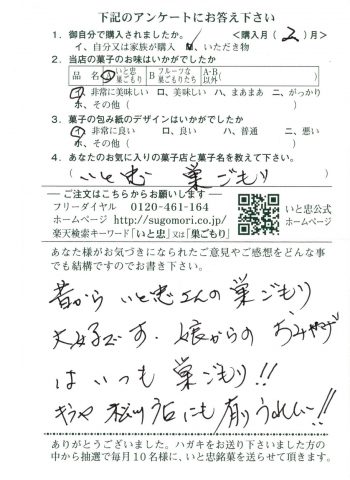 下記のアンケートにお答え下さい
1. 御自分で購入されましたか。 <購入月( 2 )月>
イ、自分又は家族が購入 ロ、いただき物
2. 当店の菓子のお味はいかがでしたか
品 名 A いと忠 巣ごもりたち B フルーツな 巣ごもりたち A・B 以外( )
イ、非常に美味しい ロ、美味しい ハ、まあまあ ニ、がっかり
ホ、その他( )
3. 菓子の包み紙のデザインはいかがでしたか
イ、非常に良い ロ、良い ハ、普通 ニ、悪い
ホ、その他( )
4. あなたのお気に入りの菓子店と菓子名を教えて下さい。
( いと忠 巣ごもり )
― ご注文はこちらからお願いします ―
フリーダイヤル 0120-461-164
ホームページ http://sugomori.co.jp/
楽天検索キーワード「いと忠」又は「巣ごもり」
いと忠公式
ホームページ
あなた様がお気づきになられたご意見やご感想をどんな事
でも結構ですのでお書き下さい。
昔から いと忠さんの巣ごもり
大好きです。娘からの おみやげ
は いつも 巣ごもり!!
にも有りうれしい!!
ありがとうございました。ハガキをお送り下さいました方の
中から抽選で毎月10名様に、いと忠銘菓を送らせて頂きます。